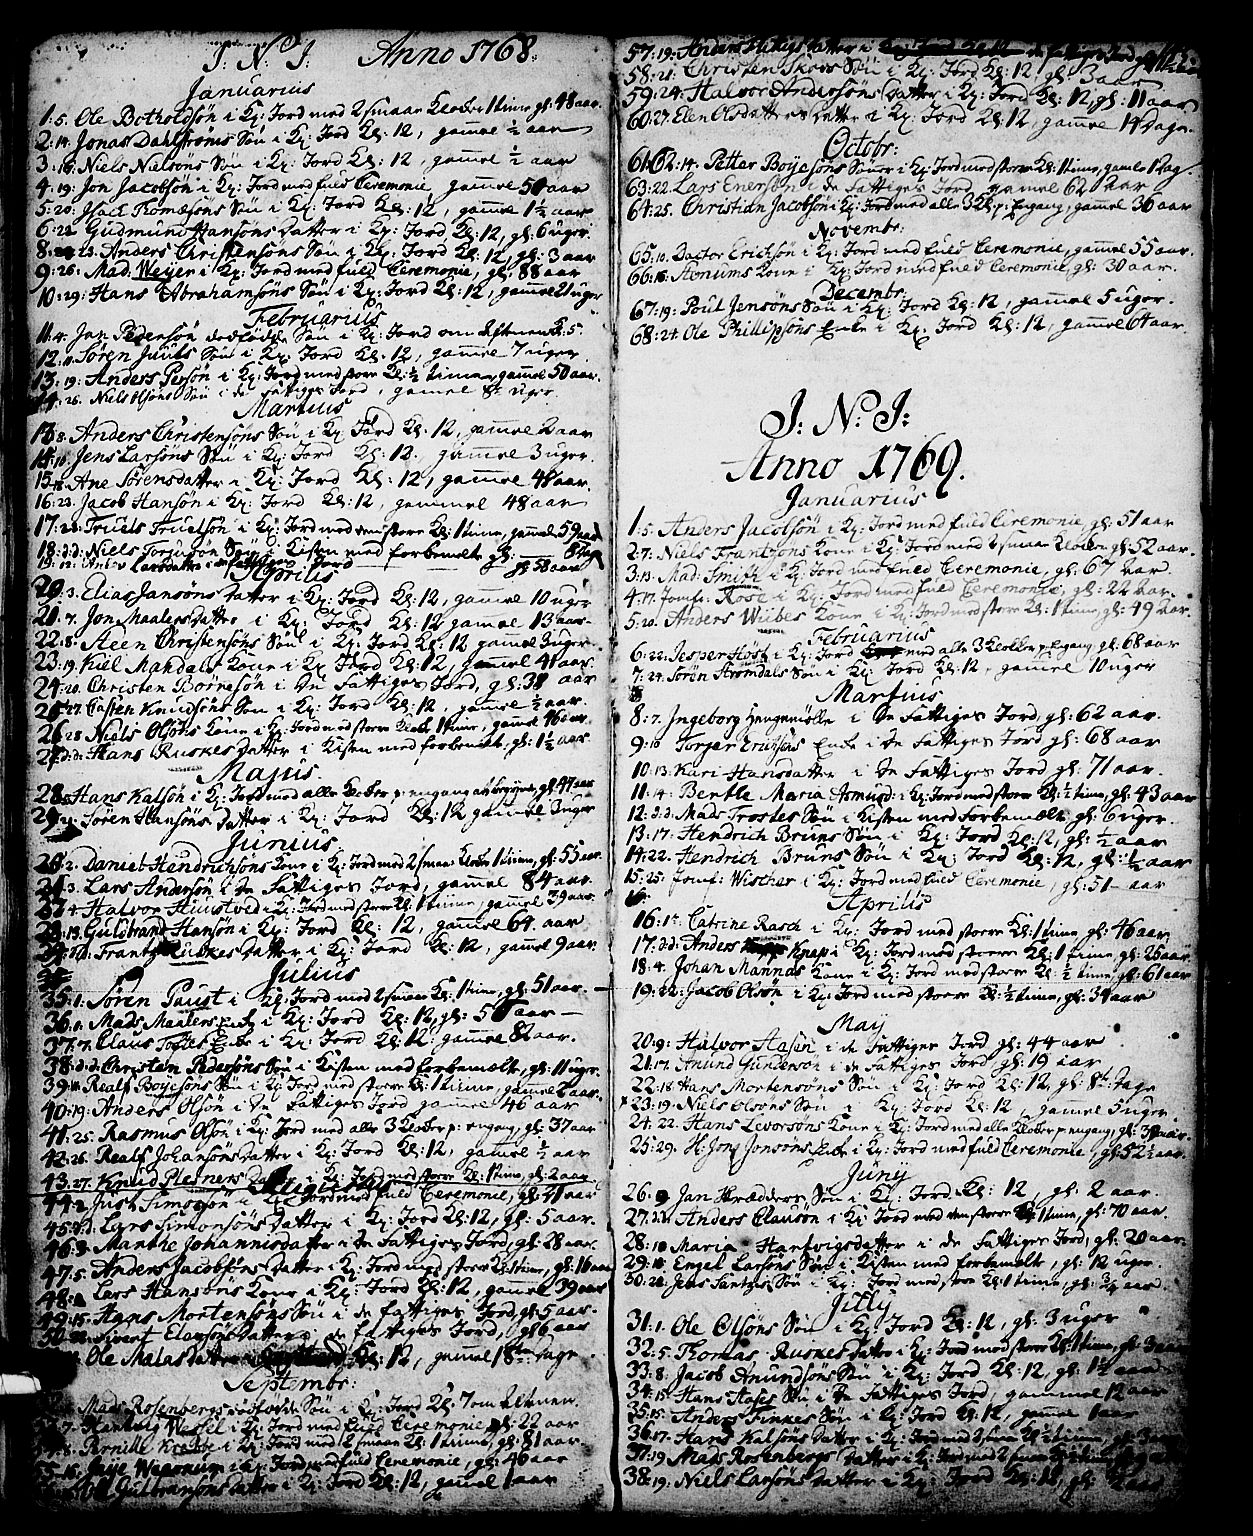 J. N. J. Anno 1768.
Januarius
1:5. Ole Botholdsön i Kχ: Jord med 2 smaa Klocker 1 time, gl: 48 aar.
2:14. Jonas Dahlströms Sön i Kχ: Jord Kl: 12, gamel ½ aar
3:18. Niels Nielsöns Sön i Kχ: Jord Kl: 12, gamel ½ aar
4:19: Jon Jacobsön i Kχ: Jord med fuld Ceremonie, gamel 50 aar
5:20: Thomesöns Sön i Kχ: Jord Kl: 12, gamel 1½ aar
6:22 Gudmund Hansöns Datter i Kχ: Jord Kl: 12, gl: 6 uger
8: 23. Anders Christensöns Sön i Kχ: Jord Kl: 12, gl: 3 aar
9:26: Mad. Weyer i Kχ: Jord med fuld Ceremonie, gl: 88 aar
10:29: Hans Abrahamsöns Sön i Kχ: Jord Kl: 12, gamel 21 uger
Februarius
11:4. Jan Pedersön dödfödde Sön i Kχ: Jord om Aftenen Kl: 5.
12:11. Sören Juuls Sön i Kχ: Jord Kl: 12, gamel 7 uger
13:19: Anders Persön i Kχ: Jord med store Kl: ½ time, gamel 50 aar.
14:26. Niels Olsöns Sön i de fattiges Jord, gamel 8 uger.
Martius
8. Anders Christensöns Sön i Kχ: Jord Kl: 12, gamel 2 aar
Jens Larsöns Sön i Kχ: Jord Kl: 12, gamel 3 uger.
15: Ane Sörensdatter i Kχ: Jord Kl: 12, gamel 48 aar.
16:22. Jacob Hansön i Kχ: Jord Kl: 12, gammel 48 aar
17:23. Truels Truelsön i Kχ: Jord med den store Kl: 1 time, gamel 59 aar
18:d:d: Niels Torguson Sön i Kisten med forbemelte gl: 8 dage
19: Larsdatter i fattiges Jord gl: 58 aar
Aprilis
20:3. Elias Jansöns Datter i Kχ: Jord Kl: 12, gamel 10 uger
21:7. Jon Maalers Datter i Kχ: Jord Kl: 12 gamel 13 aar
22:8. Steen Christensöns Sön i Kχ: Jord Kl: 12 gamel 3 uger
23:19. Kiel Mandals Kone i Kχ: Jord Kl: 12, gamel 41 aar.
24:20. Christen Börresön i De Fattiges Jord, gl: 38 aar
27. Carsten Knudsöns Sön i Kχ: Jord Kl: 12, gamel ½ aar.
26:28 Niels Olsöns Kone i Kχ: Jord med store Klock 1 time, gamel 46 aar.
27:d:d: Hans Ruskes Datter i Kisten med forbemelt, gl: 1½ aar.
Majus.
28: Hans Kalsön i Kχ: Jord med alle Klocker p: engang gl: 47 aar
29: Sören Hansöns Datter i Kχ: Jord Kl: 12 gamel 3 uger
Junius
2. Daniel Hendrichsöns Kone i Kχ: Jord med 2 smaa Klocker 1 time, gl: 55 aar
3. Lars Andersön i De Fattiges Jord, gamel 84 aar.
Halvor Hiimstved i Kχ: Jord med store Kl: 1 time, gamel 39 aar.
13. Guldbrand Hansön i Kχ: Jord Kl: 12, gamel 64 aar
Frantz Ruskes Datter i Kχ: Jord Kl: 12, gamel 9 aar.
Julius
35:1. Sören Paust i Kχ: Jord med 2 smaa Kl: 1 time, gl: 51 aar.
36: Mads Maalers Enke i Kχ: Jord Kl: 12, gl: 56 aar
37:7. Claus Enke i Kχ: Jord Kl: 12: gammel 82 aar.
38:d:d: Christen Pedersöns Sön i Kisten med forbemelte, gl: 11 uger
39: Realf Boyesöns Sön i Kχ: Jord med store Kl: 1 time, gamel 2 aar.
40:19: Anders Olsön i De Fattiges Jord gamel 46 aar
41:25. Rasmus Olsön i Kχ: Jord med alle 3 Klocker p: engang, gl: 37 aar
42:26. Realf Johansöns Datter i Kχ: Jord Kl: 12, gamel ½ aar
43:27. Knud Plesners Datter i Kχ: Jord med store Kl: 1 time, gl: 2 aar
Just Simonsön i Kχ: Jord med fuld Ceremonie, gl: 71 aar
45:d:d. Lars Simonsöns Datter i Kχ: Jord Kl: 12, gl: 5 aar.
46:3. Marthe Johannisdatter i De Fattiges Jord, gl: 28 aar.
47:5. Anders Jacobsöns Datter i Kχ: Jord med store Kl: 1 time, gl: 16 aar
48: Lars Hansöns Kone i Kχ: Jord Kl: 12, gamel 39 aar
49:15. Hans Mortensöns Sön i de fattiges Jord, gl: 5 aar.
50: Sivert Elevsöns Datter i de fattiges Jord, gl: 6 aar
Ole Matiasdatter Kl: 12, gamel 18 dage
Septembr:
Mads Rosenbergs dödfödde Sön i Kχ: Jord Kl. 7 om Aftenen
7. Hartwig Wessel i Kχ: Jord med fuld Ceremonie gl: 22 aar
8. Pernille Krabbe i Kχ: Jord med 2 smaa Kl: 1 time, gl: 81 aar.
16. Wenonum i Kχ: Jord med fuld Ceremonie, gl: 40 aar
Gulbransöns Datter i Kχ: Jord Kl: 12, gamel 1 aar
57:19: Anders Datter i
58:21: Christen Skovs Sön i Kχ: Jord Kl: 12, gl: 3 aar
59:24: Halvor Andersöns Datter i Kχ: Jord Kl: 12, gl: 11 aar
60:27: Elen Olsdatters Datter i Kχ: Jord Kl: 12, gamel 14 Dage
Octobr:
61:62:14. Petter Boyesöns Sönner i Kχ: Jord med store Kl: 1 time, gamle 1 Dag.
63:22. Lars Enersön i De Fattiges Jord gamel 62 aar
64:25. Christian Jacobsön i Kχ: Jord med alle 3 Kl: p: Engang, gamel 36 aar
Novembr:
65:10. Doctor Erichsön i Kχ: Jord med fuld Ceremonie, gamel 55 aar.
66:16. Arnums Kone i Kχ: Jord med fuld Ceremonie, gl: 30 aar.
Decembr:
67:19: Poul Jensöns Sön i Kχ: Jord Kl: 12, gamel 5 uger.
68:24: Ole Phillipsöns Enke i Kχ: Jord Kl: 12, gamel 64 aar.
J: N: J:
Anno 1769.
Januarius
1:5. Anders Jacobsön i Kχ: Jord med fuld Ceremonie, gl: 51 aar
2:7: Niels Frantzöns Kone i Kχ: Jord med 2 smaa Klocker gl: 52 aar.
3:13: Mad: Smith i Kχ: Jord med fuld Ceremonie, gl: 67 aar.
4:17. Jomfr: Rose i Kχ: Jord med fuld Ceremonie, gl: 22 aar.
5:20. Anders Wiibes Kone i Kχ: Jord med store Kl: 1 time, gl: 49 aar.
Februarius
6:22: Jesper Höst i Kχ: Jord med alle 3 Klocker p: Engang gl: 68 aar
7:24. Sören Aromdals Sön i Kχ: Jord Kl: 12, gamel 10 uger
Martius
8:7. Ingeborg Hengemölle i De Fattiges Jord, gl: 62 aar.
9:10 Torger Erichsens Enke i De Fattiges Jord gl: 68 aar
10:13. Kari Hansdatter i De Fattiges Jord gl: 71 aar.
11:14: Bertle Maria Asmund: i Kχ: Jord med store Kl: ½ time, gl: 43 aar
12:d:d: Mads Trostes Sön i Kisten med forbemelt, gl: 6 uger.
13:17: Hendrich Bruns Sön i Kχ: Jord Kl: 12, gl: ½ aar
14:22. Hendrich Bruns Sön i Kχ: Jord Kl: 12, gl: ½ aar
15:25: Jomf: Wischer i Kχ: Jord med fuld Ceremonie, gl: 51 aar
Aprilis
16:1: Catrine Rasch i Kχ: Jord med store Kl: 1 time gl: 46 aar
17:d:d: Anders Knap i Kχ: Jord med store Kl: 1 time, gl: 25 aar
18:4. Johan Mannas Kone i Kχ: Jord med store Kl: ½ time, gl: 61 aar
19:22: Jacob Olsön i Kχ: Jord med store Kl: ½ time, gl: 34 aar
May
20:9: Halvor Aasen i de fattiges Jord gl: 44 aar
21:17. Amund Gundersön i de fattiges Jord gl: 19 aar
22:18 Hans Mortensöns Sön i Kχ: Jord Kl: 12, gl: 8 Dage
23:19: Niels Olsöns Sön i Kχ: Jord Kl: 12, gamel 5 uger
24:22: Hans Levorsöns Kone i Kχ: Jord med alle Klocker p: engang, gl: 30 aar.
25:29: H: Jonsöns Enke i Kχ: Jord med fuld Ceremonie, gl: 52½ aar.
Juny
26:9. Jan Skrædders Sön i Kχ: Jord Kl: 12, gl: 2 aar.
27:d:d: Anders Clausön i Kχ: Jord med den store Kl: 1 time, gl: 70 aar.
28:10 Maria Hartvigsdatter i de Fattiges Jord, gl: 20 aar.
29:16: Engel Larsöns Sön i Kisten med forbemelte, gl: 12 uger.
30:28: Jens Santzes Sön i Kχ: Jord med store Kl: 1 time, gl: ¾ aar
Jully
31:1. Ole Olsöns Sön i Kχ: Jord Kl: 12, gl: 3 uger
32:5: Thomas Ruskes Datter i Kχ: Jord med store Kl: 1 time, gl: 3 aar
33:8. Jacob Amundsöns Sön i Kχ: Jord Kl: 12, gl: 1½ aar
34:15. Hans Hases Sön i De Fattiges Jord, gammel 12 aar
35:15. Anders Finkes Sön i Kχ: Jord Kl: 12, gamel 1 aar
36:17. Hans Kalsöns Datter i Kχ: Jord med 2 smaa Kl: ½ time, gl: 3 aar
37:19 Mads Rosenbergs Datter i Kχ: Jord med 2 smaa Kl:
38:19: Niels Larsöns Datter i Kχ: Jord Kl: 12, gl: ½ aar